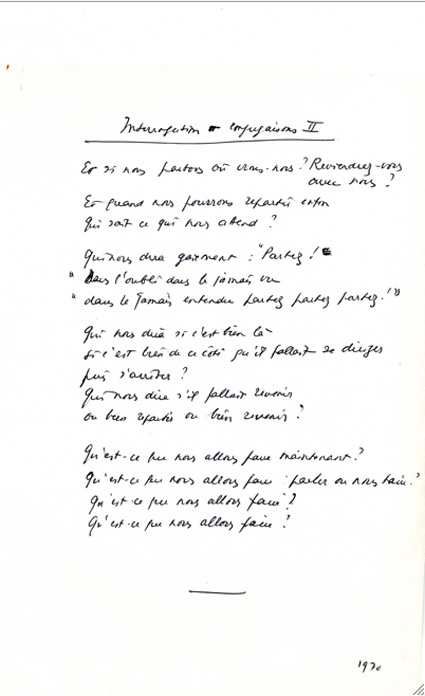 Interrogation et conjugaisons II
Et si nous partons où irons-nous ? Reviendrez-vous
avec nous ?
Et quand nous pourrons repartir enfin
Qui sait ce qui nous attend ?
Qui nous dira gaiement : "Partez !
" dans l'oubli dans le jamais vu
" dans le jamais entendu partez partez partez ! "
Qui nous dira si c'est bien là
si c'est bien de ce côté qu'il fallait se diriger
puis s'arrêter ?
Qui nous dira s'il fallait revenir
ou bien repartir ou bien revenir ?
Qu'est-ce que nous allons faire maintenant ?
Qu'est-ce que nous allons faire : parler ou nous taire ?
Qu'est-ce que nous allons faire ?
Qu'est-ce que nous allons faire ?
1970